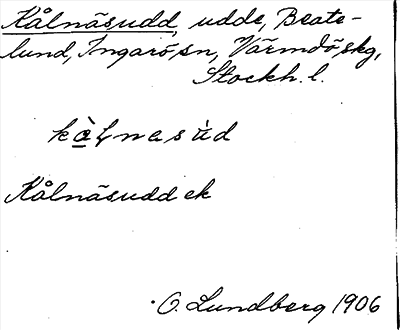 Kålnäsudd, udde, Beate-
lund, Ingarö sn, Värmdö skg,
Stockh. l.
Kålnäsudd ek
O. Lundberg 1906